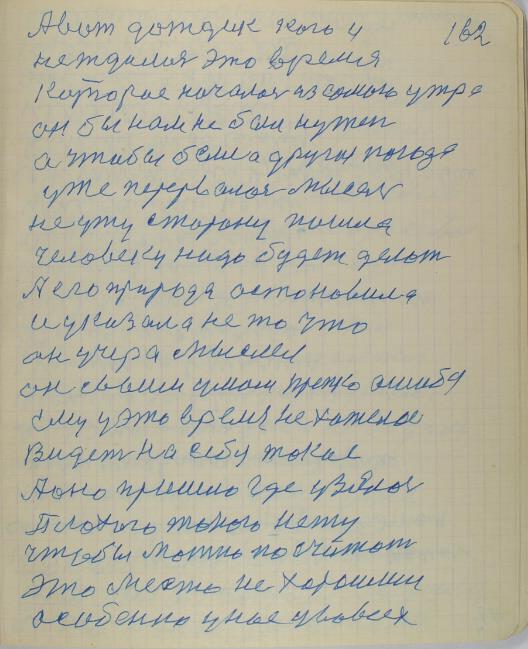 162
Авот дождик кого и
неждался это время
Которое начался изсамого утра
он бы нам не был нужен
а чтобы была другая погода
уже перервалась мысел
не уту сторону пошла
человеку надо будет делат
Аего природа остоновила
и указала не то что
он учера мыслел
он своим умом ошибя
ему у это время не хотелос
Видет на себя такое
Аоно пришло где узялос
Плохого токого нету
чтобы можно посчитат
Это место не хорошим
особенно унас увовсех